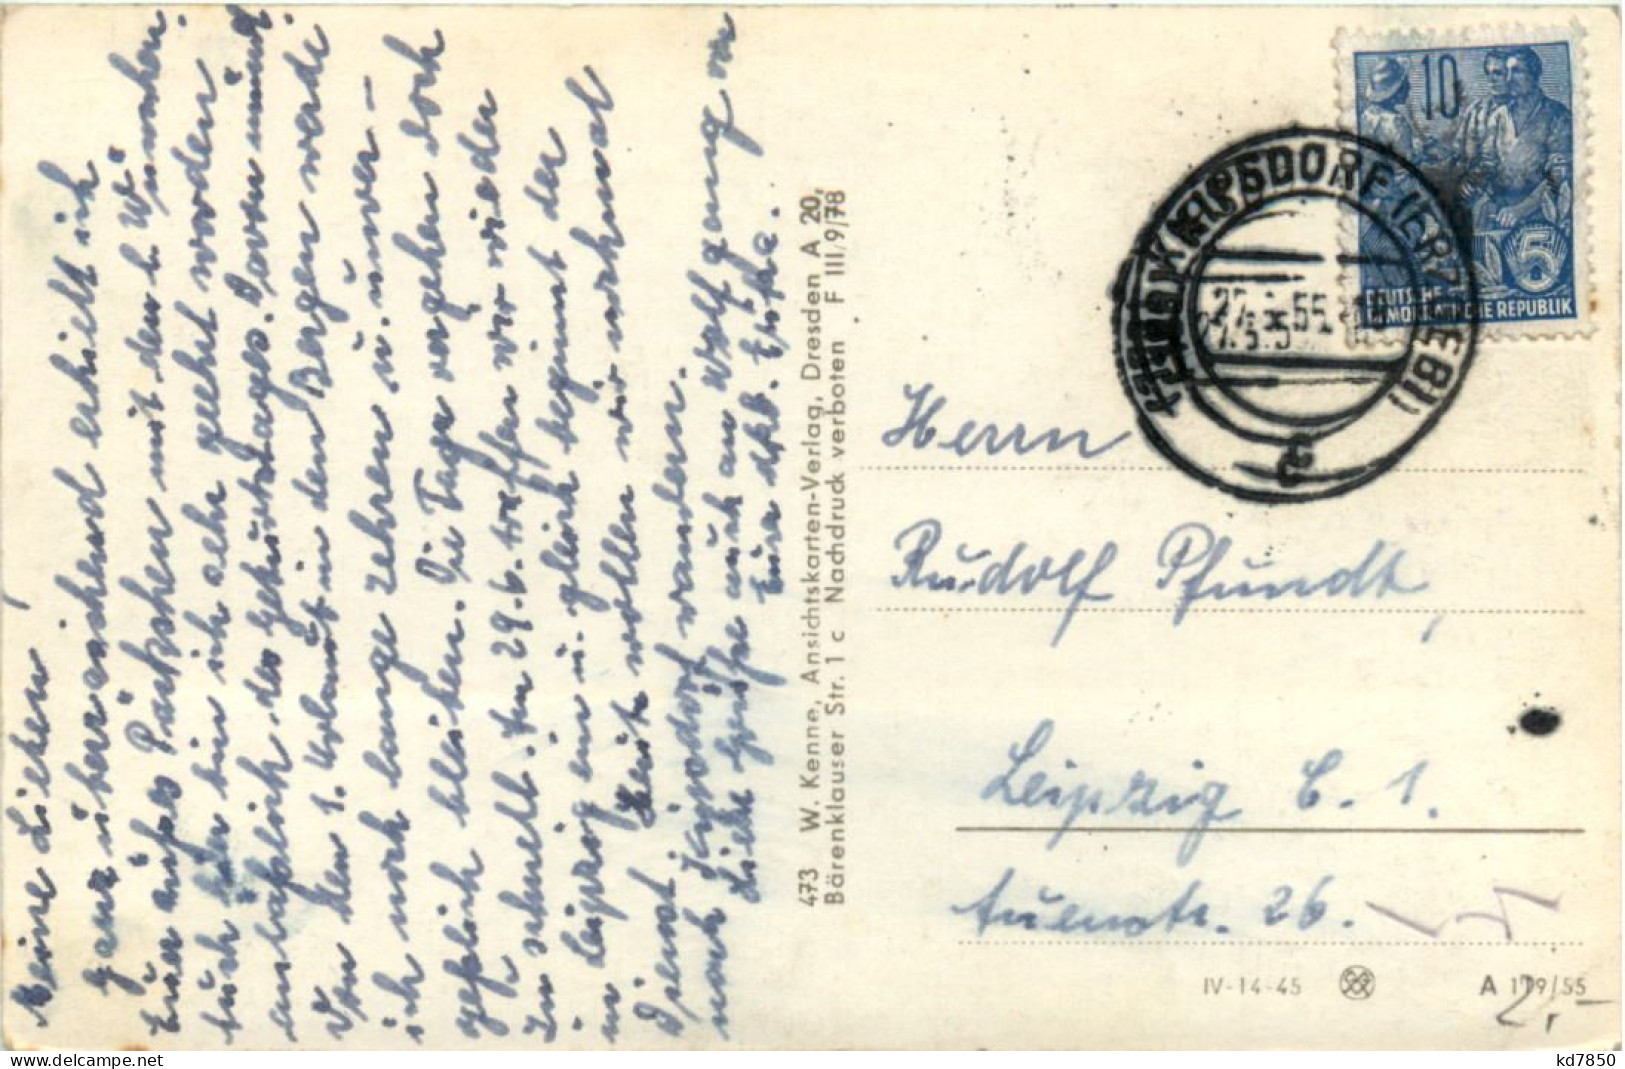 Meine Lieben
Ganz überraschend erhielt ich
Euer süsses Päckchen mit den l. Wünschen.
Auch hier bin ich sehr geehrt worden
anlässlich des Geburtstages.
Von den 1. Urlaub in den Bergen werde
ich noch lange zehren u. unver-
gesslich bleiben. Die Tage vergehen doch
zu schnell. Am 29.6. treffen wir wieder
in Leipzig ein u. gleich beginnt der
Dienst. Heut wollen wir nochmal
nach Jagwdorf wandern.
Liebe Grüsse auch an Wolfgang von
Eure
473 W. Kenne, Ansichtskarten-Verlag, Dresden A 20,
Bärenklauser Str. 1 c Nachdruck verboten F III/9/78
10
5
DEUTSCHE
DEMOKRATISCHE REPUBLIK
(ERZGEB)
c
Herrn
Rudolf Pfundt,
Leipzig C. 1.
Auenstr. 26.
IV-14-45
A 119/55
2,-
kd7850